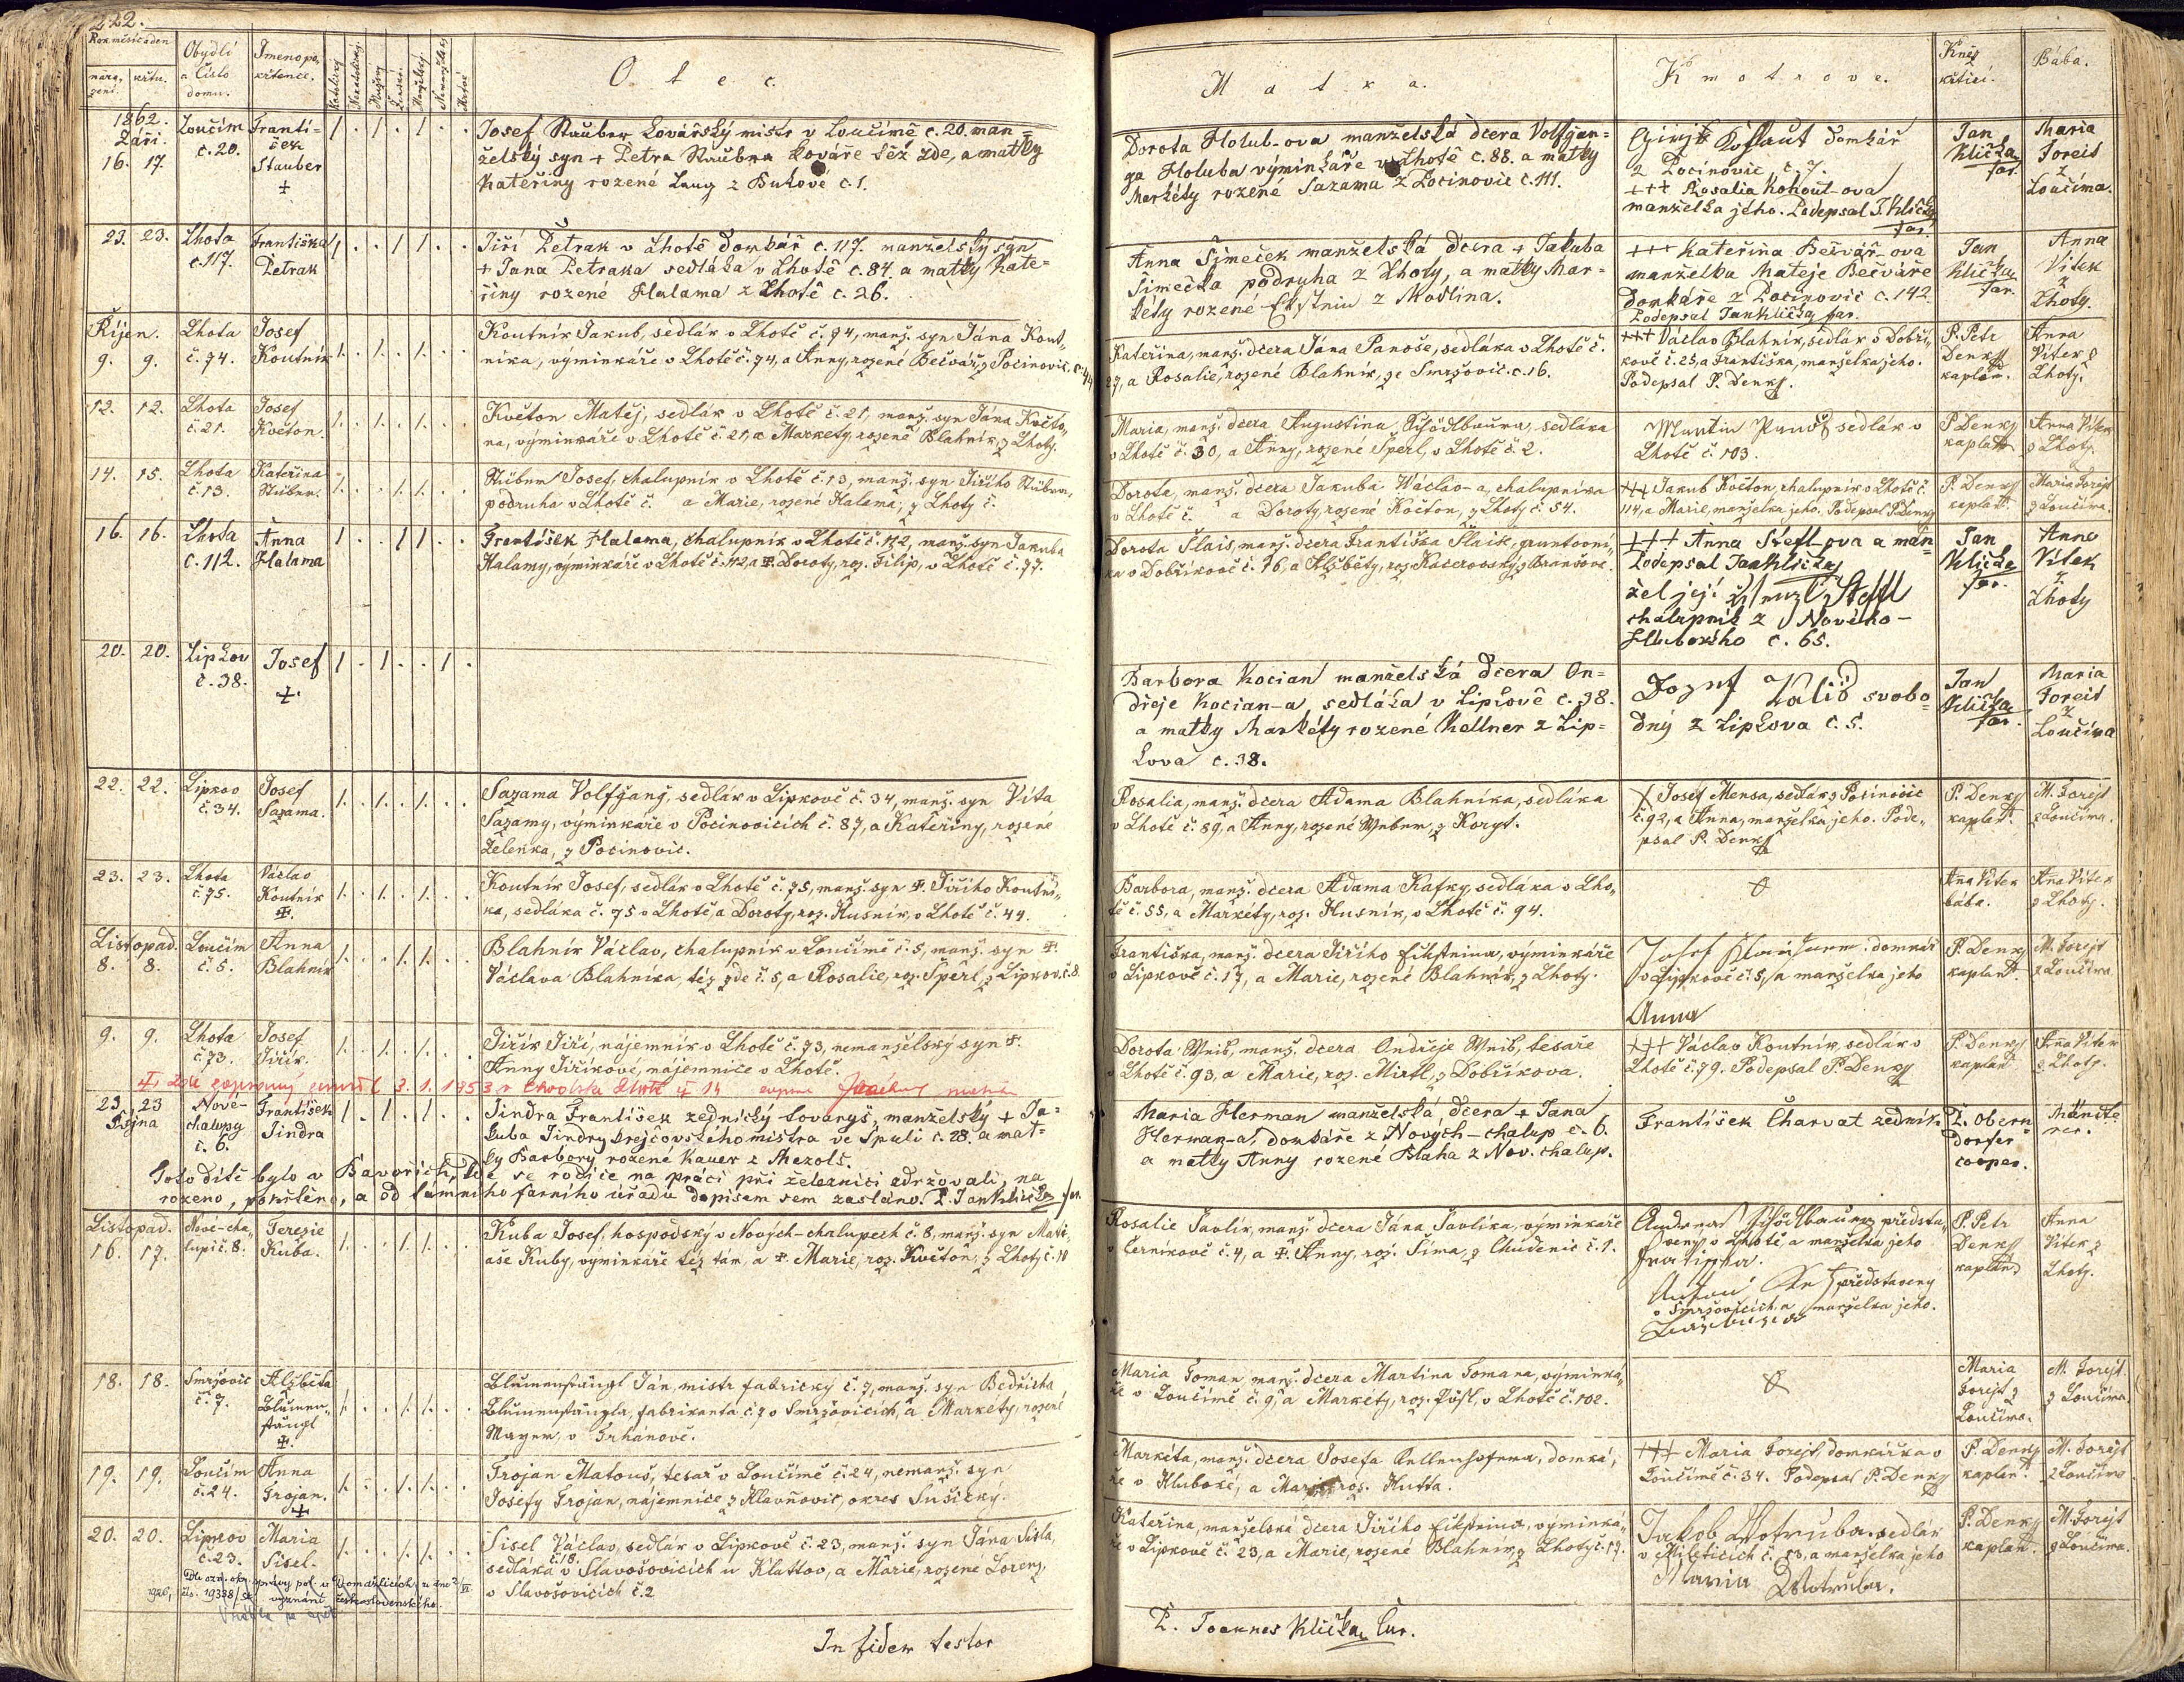 222.
Rok měsíc a den
naro,
zení.
křtu.
Obydlí
a Číslo
domu.
Jmeno po,
křtence.
Katolický
Nekatolický
Mužský
Ženské
Manželský
Nemanželský
Mrtvé
Otec.
Matka.
Kmotrove.
Kněz
křtící.
Bába.
1862.
Září.
16. 17.
Loučim
č. 20.
Franti=
šek
Stauber
+
Josef Stauber kovářský mistr v Loučimě č. 20. man=
želský syn + Petra Staubra kováře též zde, a matky
Kateřiny rozené Laug z Bukové č. 1.
Dorota Holub-ova manželská dcera Volfgan=
ga Holuba výminkáře v Lhotě č. 88. a matky
Markéty rozené Sazama z Pocinovic č. 111.
domkář
z Pocinovic č. 7.
+++ Rosalia Kohout-ova
manželka jeho. Podepsal J. Klička
far.
Jan
Klička
far.
Maria
Foreit
z
Loučima.
23. 23.
Lhota
č. 117.
Františka
Petrak
Jiří Petrak v Lhotě domkář č. 117. manželský syn
+ Jana Petraka sedláka v Lhotě č. 84. a matky Kate=
řiny rozené Halama z Lhotě č. 26.
Anna Šimeček manželská dcera + Jakuba
Šimečka podruha z Lhoty, a matky Mar=
kéty rozené Ekstein z Modlína.
+++ Kateřina Bečvář-ova
manželka Mateje Bečváře
domkáře z Pocinovic č. 142
Podepsal Jan Klička far.
Jan
Klička
far.
Anna
Vítek
z
Lhoty.
Říjen.
9. 9.
Lhota
č. 74.
Josef
Koutník
Koutník Jakub, sedlák v Lhotě č. 74, manž. syn Jána Kout,
níka, výminkáře v Lhotě č. 74, a Anny, rozené Bečvář, z Pocinovic. č. 44
Kateřina, manž. dcera Jána Panoše, sedláka v Lhotě č.
27, a Rosalie, rozené Blahník, ze Smržovic. č. 16.
+++ Václav Blahník, sedlák v Dobří,
kově č. 25, a Františka, manželka jeho.
Podepsal P. Denk
P. Petr
Denk
kaplan.
Anna
Vítek z
Lhoty.
12. 12.
Lhota
č. 21.
Josef
Květon
Květon Matěj, sedlák v Lhotě č. 21, manž. syn Jána Květo,
na, výminkáře v Lhotě č. 21, a Markety, rozené Blahník, z Lhoty.
Maria, manž. dcera Augustina Schödlbaura, sedláka
v Lhotě č. 30, a Anny, rozené Šperl, v Lhotě č. 2.
Martin Panoš sedlák v
Lhotě č. 103.
P. Denk
kaplan
Anna Vítek
z Lhoty.
14. 15.
Lhota
č. 13.
Kateřina
Stüber.
Stüber Josef, chalupník v Lhotě č. 13, manž. syn Jiřího Stüber,
podruha v Lhotě č. a Marie, rozené Halama, z Lhoty č.
Dorota, manž. dcera Jakuba Václav-a, chalupníka
v Lhotě č. a Doroty, rozené Květon, z Lhoty č. 54.
+++ Jakub Květon, chalupník v Lhotě č.
114, a Marie, manželka jeho. Podepsal P. Denk
P. Denk
kaplan.
Maria Forejt
z Loučima.
16. 16.
Lhota
č. 112.
Anna
Halama
František Halama, chalupník v Lhotě č. 112, manž. syn Jakuba
Halamy, výminkáře v Lhotě č. 112, a +. Doroty, roz. Filip, v Lhotě č. 77.
Dorota Šlais, manž. dcera Františka Šlais, gruntovní,
ka v Dobříkově č. 76, a Alžběty, roz. Kacerovský, z Branšova.
+++ Anna Steffl ova a man=
Podepsal Jan Klička
žel její Steffl
chalupník z Nového-
Hlubokého č. 65.
Jan
Klička
far.
Anna
Vítek
z
Lhoty
20. 20.
Lipkov
č. 38.
Josef
+.
Barbora Kocian manželská dcera On=
dřeje Kocian-a sedláka v Lipkově č. 38.
a matky Markéty rozené Kellner z Lip=
kova č. 38.
Jozef svobo=
dný z Lipkova č. 5.
Jan
Klička
far.
Maria
Foreit
z
Loučima
22. 22.
Lipkov
č. 34.
Josef
Sazama.
Sazama Volfgang, sedlák v Lipkově č. 34, manž. syn Víta
Sazamy, výminkáře v Pocinovicích č. 87, a Kateřiny, rozené
Želenka, z Pocinovic.
Rosalia, manž. dcera Adama Blahníka, sedláka
v Lhotě č. 89, a Anny, rozené Weber, z Koryt.
Josef Mensa, sedlák z Pocinovic
č. 92, a Anna, manželka jeho. Pode,
psal P. Denk
P. Denk
kaplan.
M. Forejt
z Loučima.
23. 23.
Lhota
č. 75.
Václav
Koutník
+.
Koutník Josef, sedlák v Lhotě č. 75, manž. syn +. Jiřího Koutní,
ka, sedláka č. 75 v Lhotě, a Doroty, roz. Husník, v Lhotě č. 44.
Barbora, manž. dcera Adama Kafky, sedláka v Lho,
tě č. 55, a Markéty, roz. Husník, v Lhotě č. 94.
Ana Vítek
bába.
Ana Vítek
z Lhoty.
Listopad.
8. 8.
Loučim
č. 5.
Anna
Blahník
Blahník Václav, chalupník v Loučimě č. 5, manž. syn +.
Václava Blahníka, též zde č. 5, a Rosalie, roz. Šperl, z Lipkov. č. 8.
Františka, manž. dcera Jiřího Eiksteina, výminkáře
v Lipkově č. 17, a Marie, rozené Blahník, z Lhoty.
Josef domkář
v Lipkově č. 5, a manželka jeho
Anna
P. Denk
kaplan.
M. Forejt
z Loučima
9. 9.
Lhota
č. 73.
Josef
Jiřík.
Jiřík Jiří, nájemník v Lhotě č. 73, nemanželský syn +.
Anny Jiříkové, nájemnice v Lhotě.
Dorota Weib, manž. dcera Ondřeje Weib, tesaře
v Lhotě č. 93, a Marie, roz. Mirtl, z Dobříkova.
+++ Václav Koutník, sedlák v
Lhotě č. 79. Podepsal P. Denk
P. Denk
kaplan
Ana Vítek
z Lhoty.
zde zapsaný zemřel 3. 1. 1953 v Chodská Lhotě
23. 23
Října
Nové-
chalupy
č. 6.
František
Jindra
Jindra František zednický tovaryš, manželský + Ja=
kuba Jindry krejčovského mistra ve Spuli č. 28. a mat=
ky Barbory rozené Kauer z Mezolš.
Toto dítě bylo v Bavořích, kde se rodiče na práci při železnici zdržovali, na
rozeno, pokřtěno, a od támního farního úřadu dopisem sem zasláno. P. Jan Klička far.
Maria Herman manželská dcera + Jana
Herman-a, domkáře z Nových-chalup č. 6.
a matky Anny rozené Blaha z Nov. chalup.
František Charvat zedník
P. Obern
dorfer
cooper.
Listopad.
16. 17.
Nové-cha,
lupi č. 8.
Terezie
Kuba.
Kuba Josef, hospodský v Nových-chalupech č. 8, manž. syn Mati,
aše Kuby, výminkáře též tám, a +. Marie, roz. Květon, z Lhoty č. 10
Rosalie Pavlík, manž. dcera Jána Pavlíka, výminkáře
v Černíkově č. 4, a +. Anny, roz. Šíma, z Chudenic č. 1.
Andreas Schödlbauer představ,
vený v Lhotě a manželka jeho
představený
v Smržovicích a manželka jeho.
P. Petr
Denk
kaplan
Anna
Vítek z
Lhoty.
18. 18.
Smržovic
č. 7.
Alžběta
Blumen,
stängl
+.
Blumenstängl Ján, mistr fabrický č. 7, manž. syn Bedřicha
Blumenstängla, fabrikanta č. 7 v Smržovicích, a Markéty, rozené
Mayer, v Trhanově.
Maria Toman, manž. dcera Martina Tomana, výminká,
ře v Loučimě č. 9, a Markéty, roz. v Lhotě č. 102.
Maria
Forejt z
Loučima.
M. Forejt
z Loučima.
19. 19.
Loučim
č. 24.
Anna
Trojan.
+
Trojan Matouš, tesař v Loučimě č. 24, nemanž. syn
Josefy Trojan, nájemnice z Hlavňovic, okres Sušický.
Markéta, manž. dcera Josefa Kellenhofera, domká,
ře v Hluboké, a Marie, roz. Hutta.
+++ Maria Forejt, domkářka v
Loučimě č. 34. Podepsal P. Denk
P. Denk
kaplan.
M. Forejt
z Loučima
20. 20.
Lipkov
č. 23.
Maria
Sisel.
Sisel Václav, sedlák v Lipkově č. 23, manž. syn Jána Sisla,
sedláka č. 18. v Slavošovicích u Klattov, a Marie, rozené Lorenz,
v Slavošovicích č. 2
Kateřina, manželská dcera Jiřího Eiksteina, výminká,
ře v Lipkově č. 23, a Marie, rozené Blahník, z Lhoty č. 17.
Jakob Wotruba. sedlák
v Mileticích č. 13, a manželka jeho
Maria Wotruba.
P. Denk
kaplan.
M. Forejt
z Loučima.
Dle ozn. okr. správy pol. v Domažlicích
čís. 19338 vyznání československého.
In fidem testor
P. Joannes Klička Cur.